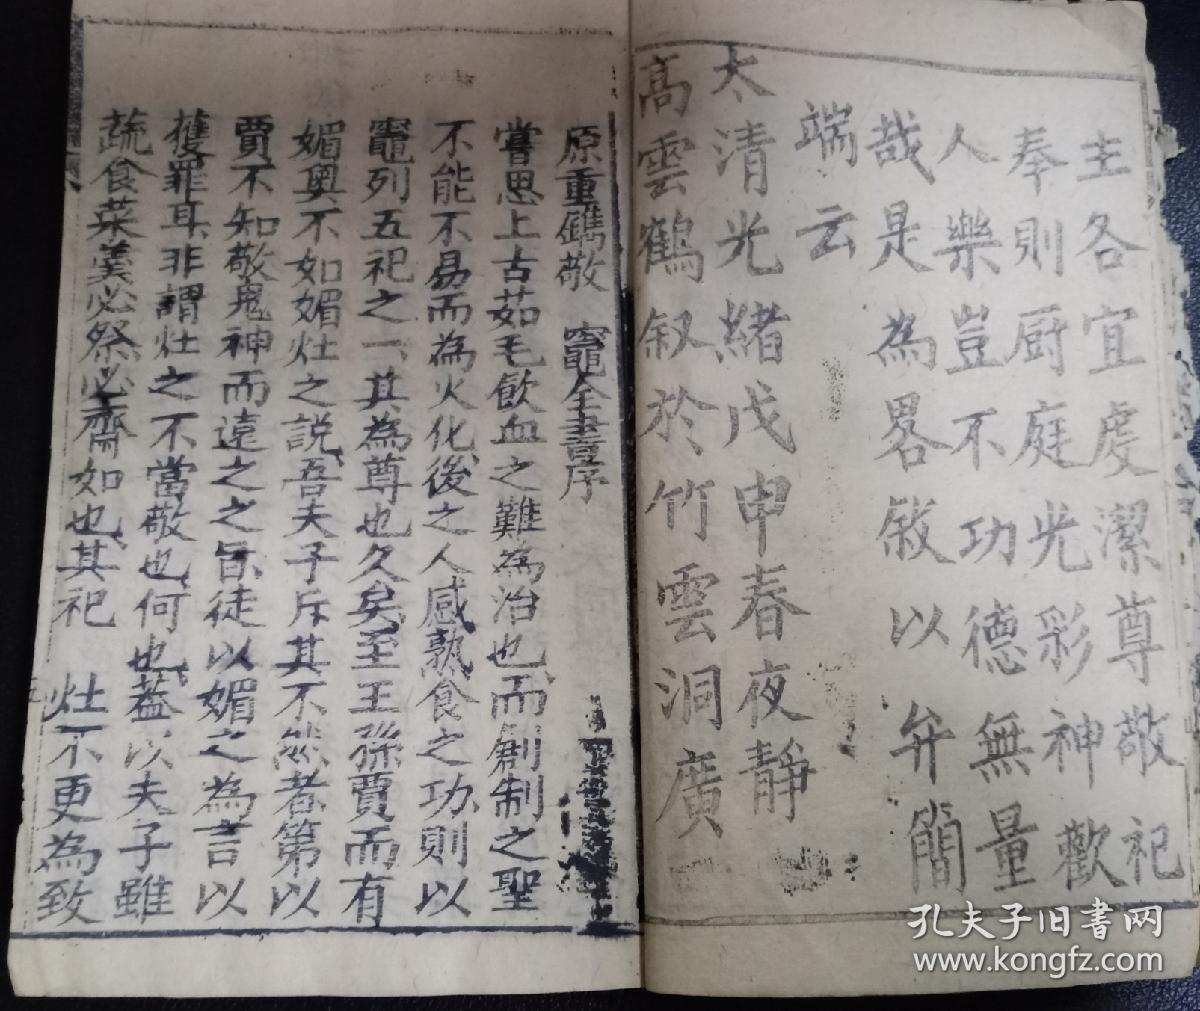 主各宜虔潔尊敬祀
奉則厨庭光彩神歡
人樂豈不功德無量
哉是為畧敘以弁簡
端云
太清光緒戊申春夜靜
高雲鶴叙於竹雲洞廣
原重鐫敬竈全書序
嘗思上古茹毛飲血之難為治也而創制之聖
不能不易而為火化後之人感熟食之功則以
竈列五祀之一其為尊也久矣至王孫賈而有
媚奥不如媚灶之説吾夫子斥其不然者第以
賈不知敬鬼神而遠之之旨徒以媚之為言以
獲罪耳非謂灶之不當敬也何也葢以夫子雖
蔬食菜羹必祭必齋如也其祀灶不更為致
孔夫子旧书网
www.kongfz.com